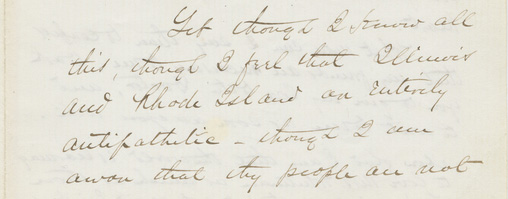 Yet though I know all
this, though I feel that Illinois
and Rhode Island are entirely
antipathetic - though I am
aware that thy people are not